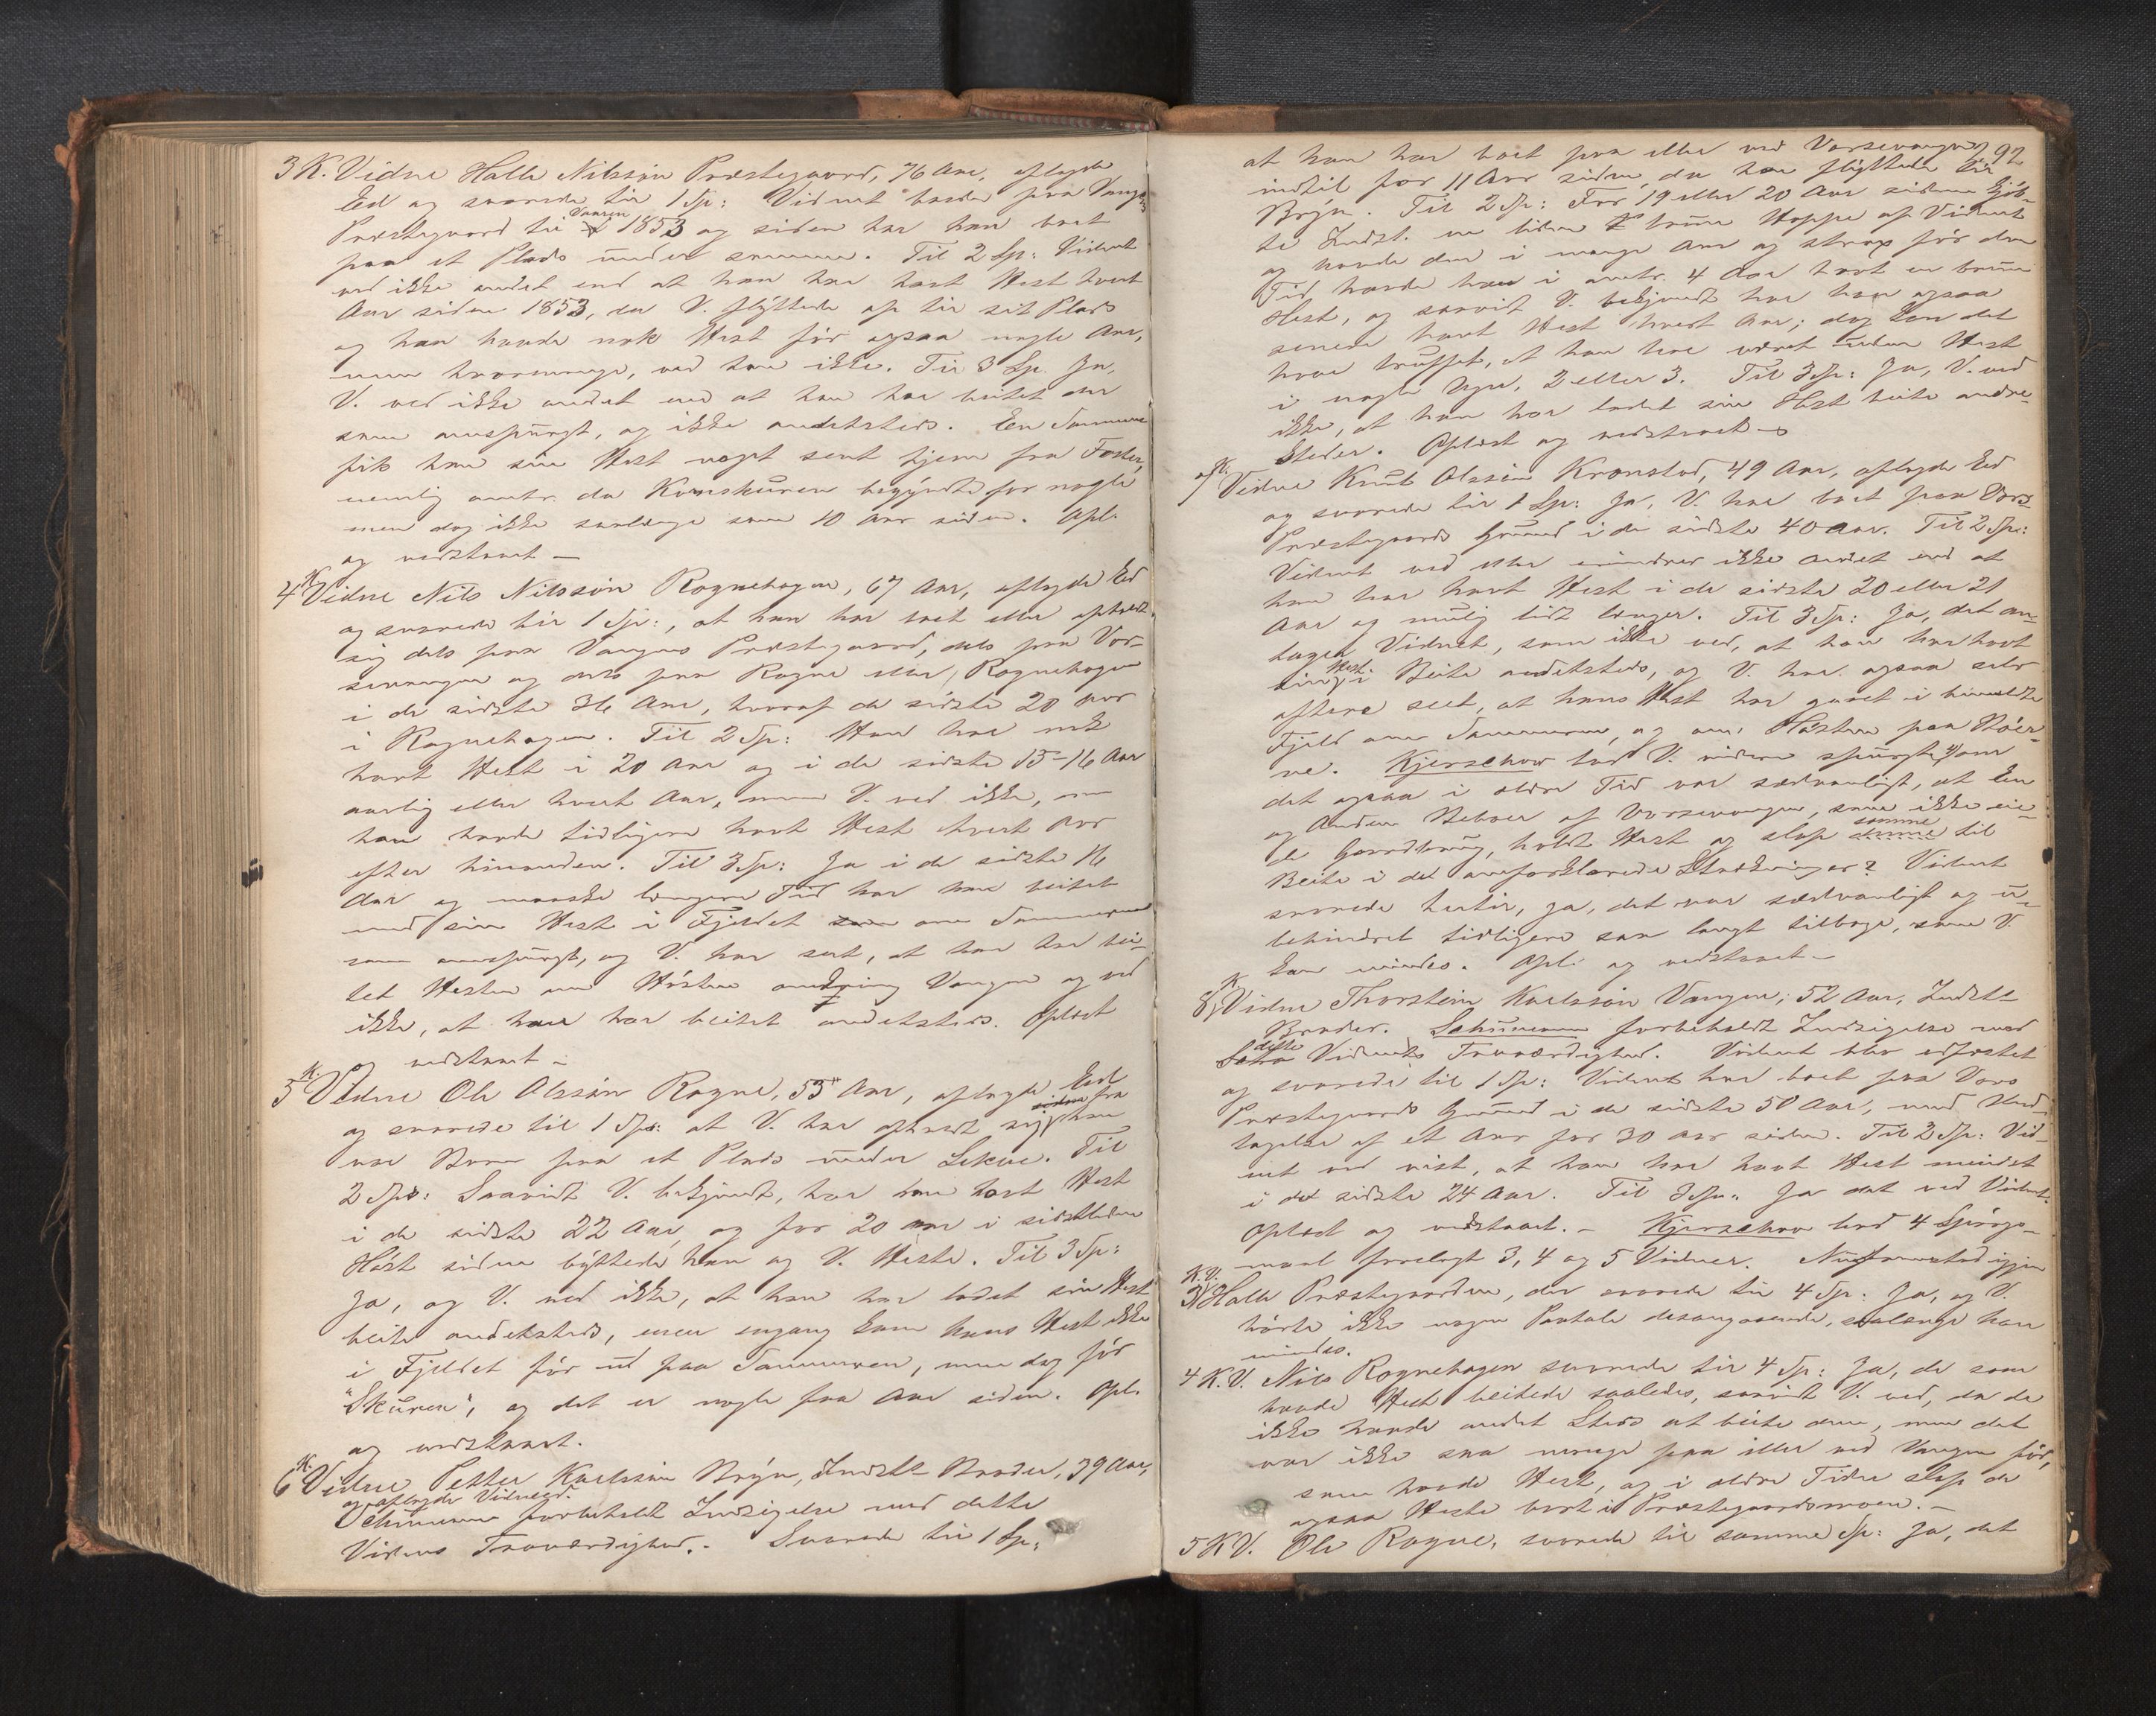 3 K. Vidne Halle Nilssøn Præstegaard, 76 Aar, aflagde
Ed og svarede til 1 Sp: Vidnet boede paa Vangs
Præstegaard til Vaaren 1853 og siden har han boet
paa et Plads under samme. Til 2 Sp: Vidnet
ved ikke andet end at han har havt Hest hvert
Aar siden 1853, da V. flyttede op til sit Plads
og han havde nok Hest før ogsaa nogle Aar,
men hvormange, ved han ikke. Til 3 Sp. Ja,
V. ved ikke andet end at han har beitet den
som omspurgt, og ikke andetsteds. En Sommer
fik han sin Hest noget sent hjem fra Foster,
nemlig omtr. da Kornskuren begyndte for nogle
men dog ikke saalænge som 10 Aar siden. Opl.
og vedstaaet —
4 K. Vidne Nils Nilssøn Rognehagen, 67 Aar, aflagde Ed
og svarede til 1 Sp:, at han har boet eller opholdt
sig dels paa Vangens Præstegaard, dels paa Vor-
sevangen og dels paa Rogne eller Rognehagen
i de sidste 36 Aar, hvoraf de sidste 20 Aar
i Rognehagen. Til 2 Sp: Han har nok
havt Hest i 20 Aar og i de sidste 15-16 Aar
aarlig eller hvert Aar, men V. ved ikke, om
han havde tidligere havt Hest hvert Aar
efter hinanden. Til 3 Sp: Ja i de sidste 16
Aar og maaske længere Tid har han beitet
med sin Hest i Fjeldet om Sommeren
som omspurgt, og V. har seet, at han har bei-
tet Hesten om Høsten omkring Vangen og ved
ikke, at han har beitet andetsteds. Oplæst
og vedstaaet —
5 K. Vidne Ole Olssøn Rogne, 53 Aar, aflagde Ed
og svarede til 1 Sp: at V. har opholdt sig fra han
var Barn paa et Plads under Lekve. Til
2 Sp: Saavidt V. bekjendt, har han havt Hest
i de sidste 22 Aar og for 20 Aar i sidstleden
Høst siden byttede han og V. Heste. Til 3 Sp:
Ja, og V. ved ikke, at han har ladet sin Hest
beite andetsteds, men engang kom hans Hest ikke
i Fjeldet før ud paa Sommeren, men dog før
"Skuren", og det er nogle faa Aar siden. Opl.
og vedstaaet.
6 K. Vidne Petter Knutssøn Brýn, Indst. Broder, 39 Aar,
og aflagde Vidneed.
Schumann forbeholdt Indsigelse mod dette
Vidnes Troværdighed. Svarede til 1 Sp:
292
at han har boet paa eller ved Vorsevangen
indtil for 11 Aar siden, da han flyttede til
Brýn. Til 2 Sp: For 19 eller 20 Aar siden kjøb-
te Indst. en liden brun Hoppe af Vidnet
og havde den i mange Aar og strax før den
Tid havde han i omtr. 4 Aar havt en brun
Hest, og saavidt V. bekjendt har han ogsaa
senere havt Hest hvert Aar; dog kan det
have truffet, at han har været uden Hest
i nogle Uger, 2 eller 3. Til 3 Sp: Ja, V. ved
ikke, at han har ladet sin Hest beite andre-
steder. Oplæst og vedstaaet —
7 K. Vidne Knut Olssøn Kronstad, 49 Aar, aflagde Ed
og svarede til 1 Sp: Ja, V. har boet paa Vors
Præstegaards Grund i de sidste 40 Aar. Til 2 Sp:
Vidnet ved eller erindrer ikke andet end at
han har havt Hest i de sidste 20 eller 21
Aar og mulig lidt længer. Til 3 Sp: Ja, det an-
tager Vidnet, som ikke ved, at han har havt
sin Hest i Beite andetsteds, og V. har ogsaa selv
oftere seet, at hans Hest har gaaet i
Fjeld om Sommeren, og om Høsten paa
ne. Kjerschow lod V. videre spørge, om
det ogsaa i ældre Tid var sædvanligt, at En
og Anden Beboer af Vorsevangen, som ikke eie-
de Gaardbrug, holdt Hest og slap samme til
Beite i de omforklarede Strækninger? Vidnet
svarede hertil, ja, det var sædvanligt og u-
behindret tidligere saa langt tilbage, som V.
kan mindes. Opl. og vedstaaet —
8 K. Vidne Thorstein Knutssøn Vangen, 52 Aar, Indst.
Broder. Schumann forbeholdt Indsigelse mod
dette Vidnets Troværdighed. Vidnet blev edfæstet
og svarede til 1 Sp: Vidnet har boet paa Vors
Præstegaards Grund i de sidste 50 Aar, med Und-
tagelse af et Aar for 30 Aar siden. Til 2 Sp: Vid-
net ved vist, at han har havt Hest mindst
i det sidste 24 Aar. Til 3 Sp: Ja det ved Vidnet.
Oplæst og vedstaaet. — Kjerschow lod 4 Spørgs-
maal forelagt 3, 4 og 5 Vidner. Nu fremstod igjen
3 K.V. Halle Præstegaarden, der svarede til 4 Sp: Ja, og V.
hørte ikke nogen Paatale desangaaende, saalænge han
mindes.
4 K.V. Nils Rognehagen svarede til 4 Sp: Ja, de som
havde Hest beitede saaledes, saavidt V. ved, da de
ikke havde andet Sted at beite dem, men det
var ikke saa mange paa eller ved Vangen før,
som havde Hest, og i ældre Tider slap de
ogsaa Heste bort i Præstegaardsmoen. —
5 K.V. Ole Rogne, svarede til samme Sp: Ja, det